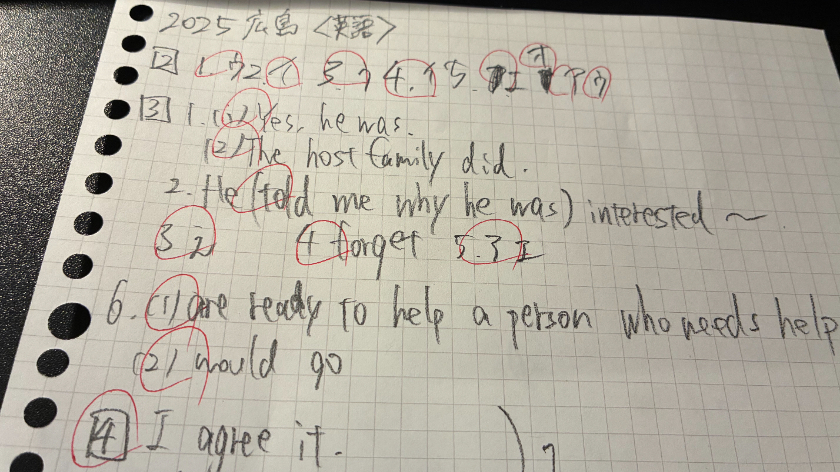 2025 広島 〈英語〉
[2] 1 ウ 2. イ 3 ウ 4. イ 5. エ オ ア ウ
[3] 1. (1) Yes, he was.
(2) The host family did.
2. He (told me why he was) interested ~
3 エ 4 forget 5. ウ エ
6. (1) are ready to help a person who needs help
(2) would go
[4] I agree it.